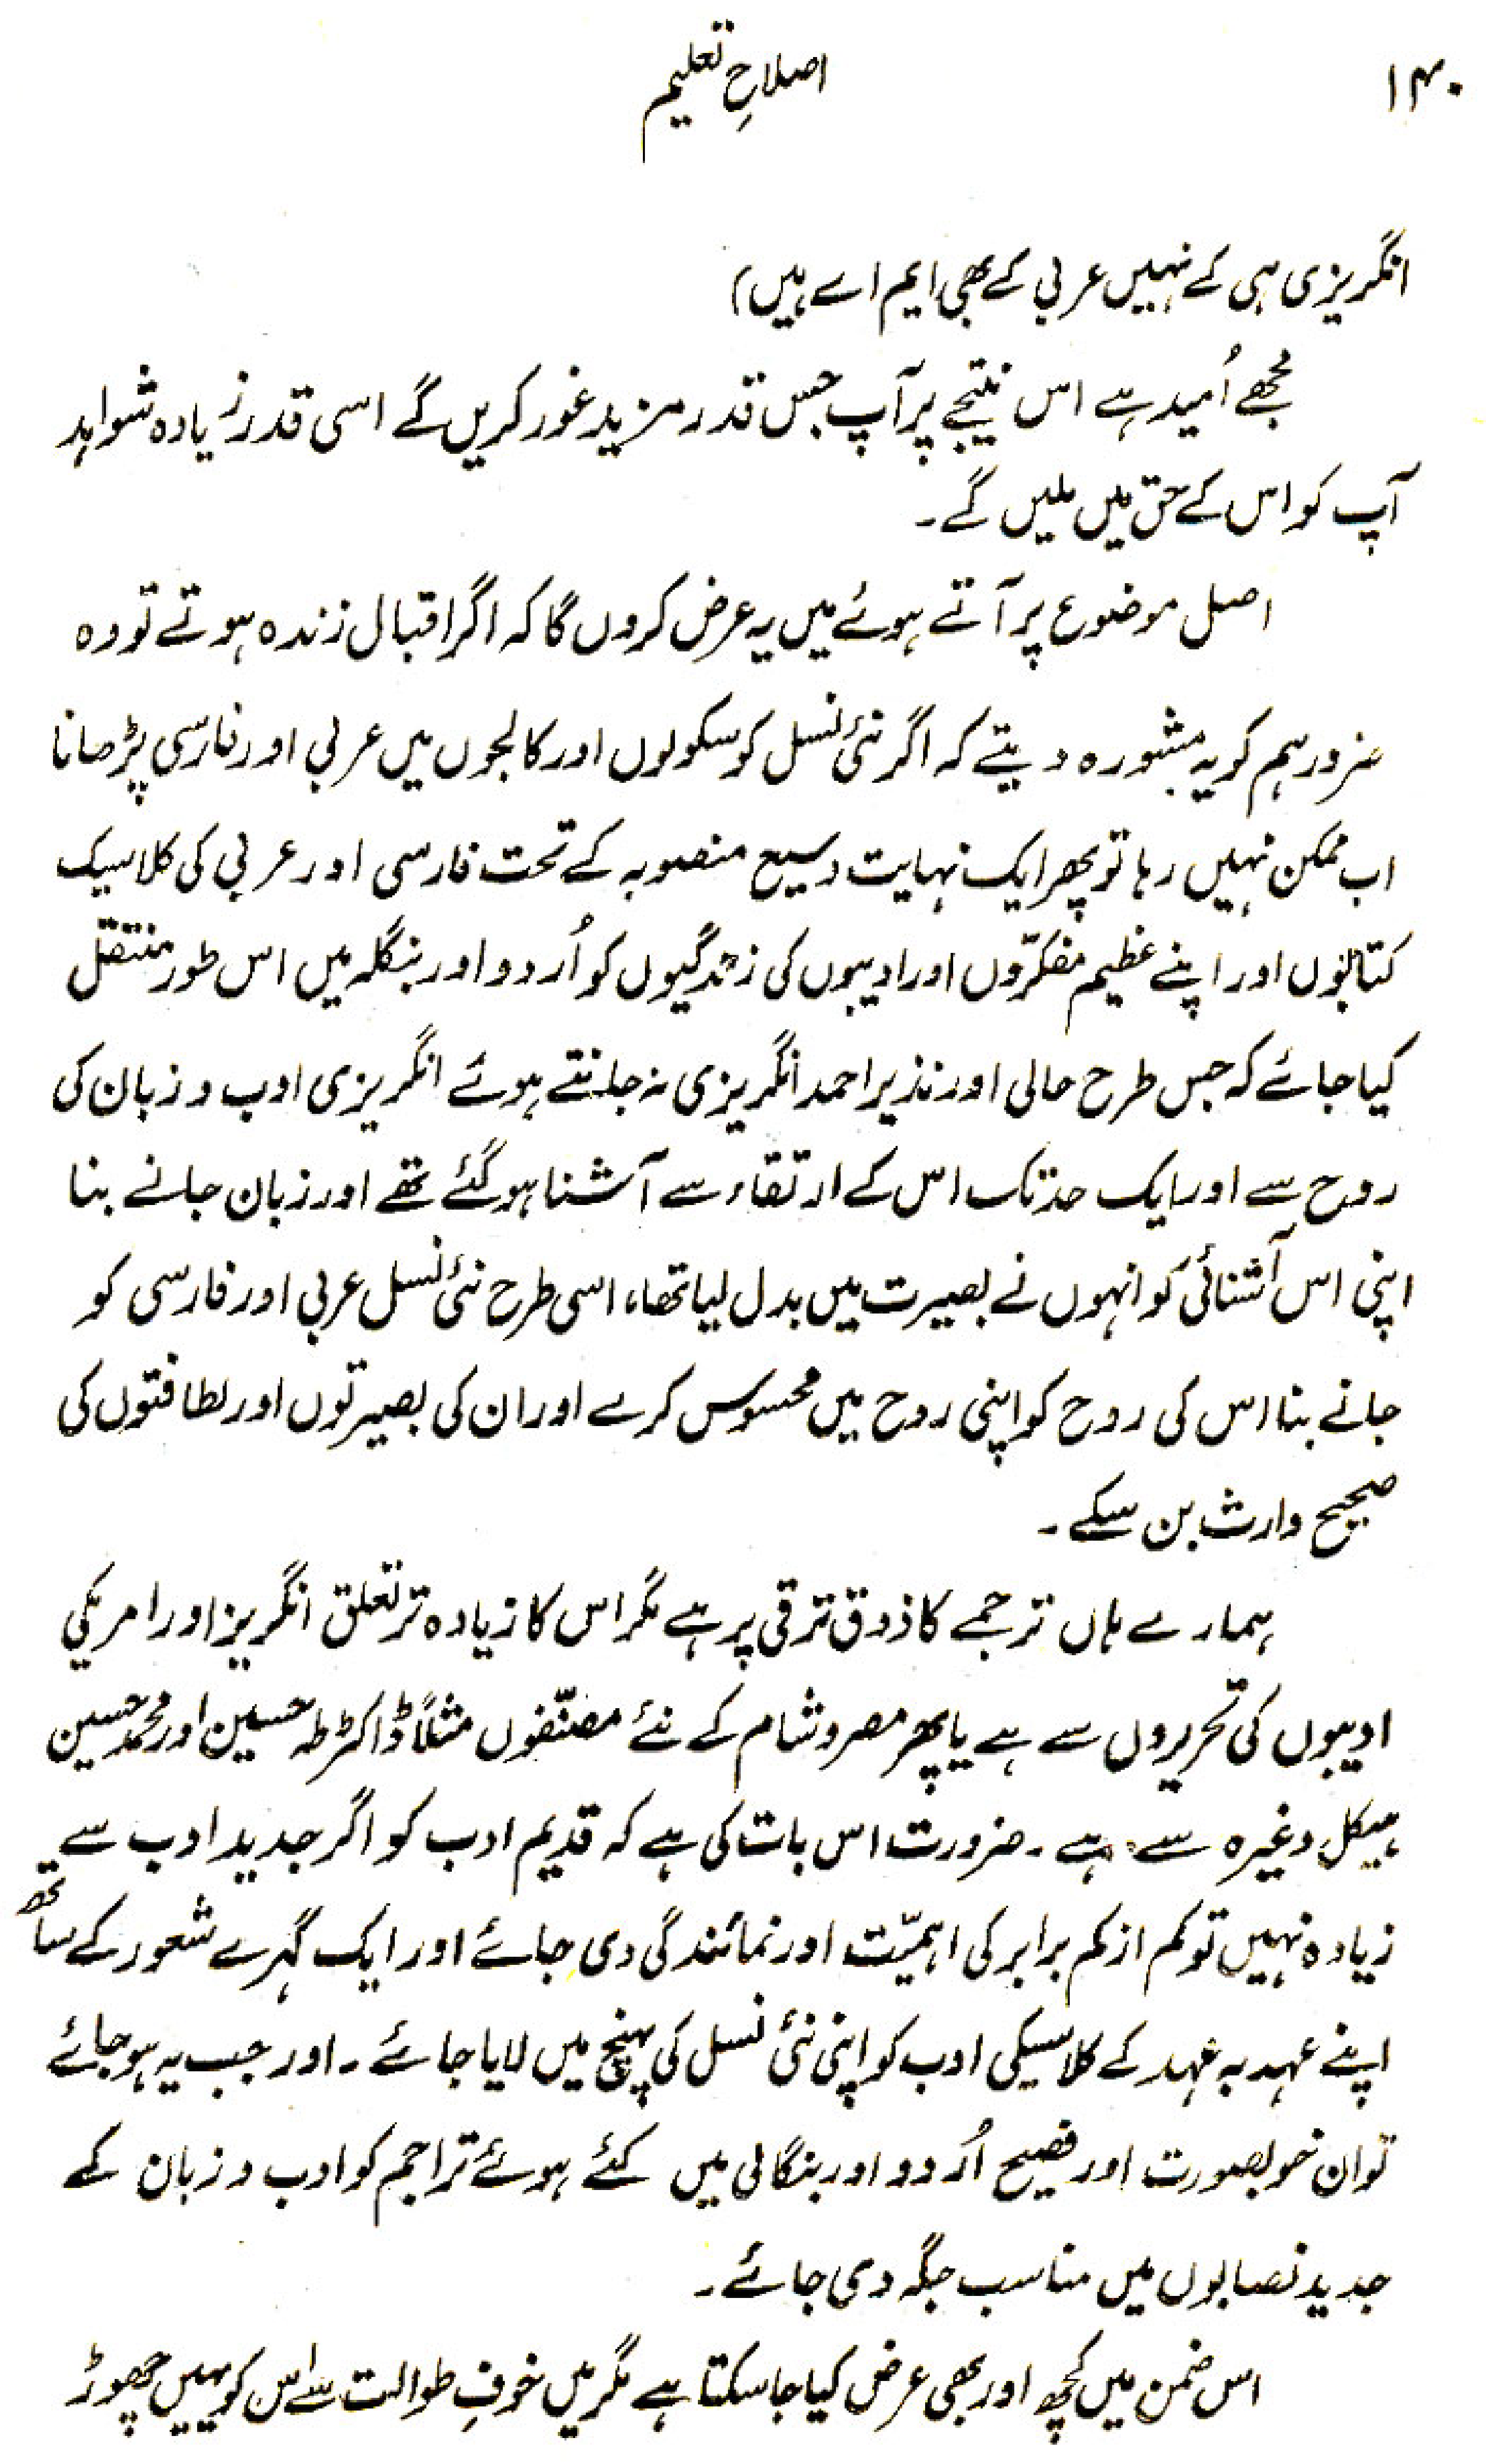 ۱۴۰
اصلاحِ تعلیم
انگریزی ہی کے نہیں عربی کے بھی ایم اے ہیں)
مجھے اُمید ہے اس نتیجے پر آپ جس قدر مزید غور کریں گے اسی قدر زیادہ شواہد
آپ کو اس کے حق میں ملیں گے۔
اصل موضوع پر آتے ہوئے میں یہ عرض کروں گا کہ اگر اقبال زندہ ہوتے تو وہ
ضرور ہم کو یہ مشورہ دیتے کہ اگر نئی نسل کو سکولوں اور کالجوں میں عربی اور فارسی پڑھانا
اب ممکن نہیں رہا تو پھر ایک نہایت وسیع منصوبہ کے تحت فارسی اور عربی کی کلاسیک
کتابوں اور اپنے عظیم مفکرّوں اور ادیبوں کی زندگیوں کو اُردو اور بنگلہ میں اس طور منتقل
کیا جائے کہ جس طرح حالی اور نذیر احمد انگریزی نہ جانتے ہوئے انگریزی ادب و زبان کی
روح سے اور ایک حد تک اس کے ارتقاء سے آشنا ہو گئے تھے اور زبان جانے بنا
اپنی اس آشنائی کو انہوں نے بصیرت میں بدل لیا تھا، اسی طرح نئی نسل عربی اور فارسی کو
جانے بنا اس کی روح کو اپنی روح میں محسوس کرے اور ان کی بصیرتوں اور لطافتوں کی
صحیح وارث بن سکے۔
ہمارے ہاں ترجمے کا ذوق ترقی پر ہے مگر اس کا زیادہ تر تعلق انگریز اور امریکی
ادیبوں کی تحریروں سے ہے یا پھر مصر و شام کے نئے مصنّفوں مثلاً ڈاکٹر طہ حسین اور محمد حسین
ہیکل وغیرہ سے ہے۔ ضرورت اس بات کی ہے کہ قدیم ادب کو اگر جدید ادب سے
زیادہ نہیں تو کم از کم برابر کی اہمیّت اور نمائندگی دی جائے اور ایک گہرے شعور کے ساتھ
اپنے عہد بہ عہد کے کلاسیکی ادب کو اپنی نئی نسل کی پہنچ میں لایا جائے۔ اور جب یہ ہو جائے
تو ان خوبصورت اور فصیح اُردو اور بنگالی میں کئے ہوئے تراجم کو ادب و زبان کے
جدید نصابوں میں مناسب جگہ دی جائے۔
اس ضمن میں کچھ اور بھی عرض کیا جا سکتا ہے مگر میں خوفِ طوالت سے اس کو یہیں چھوڑ